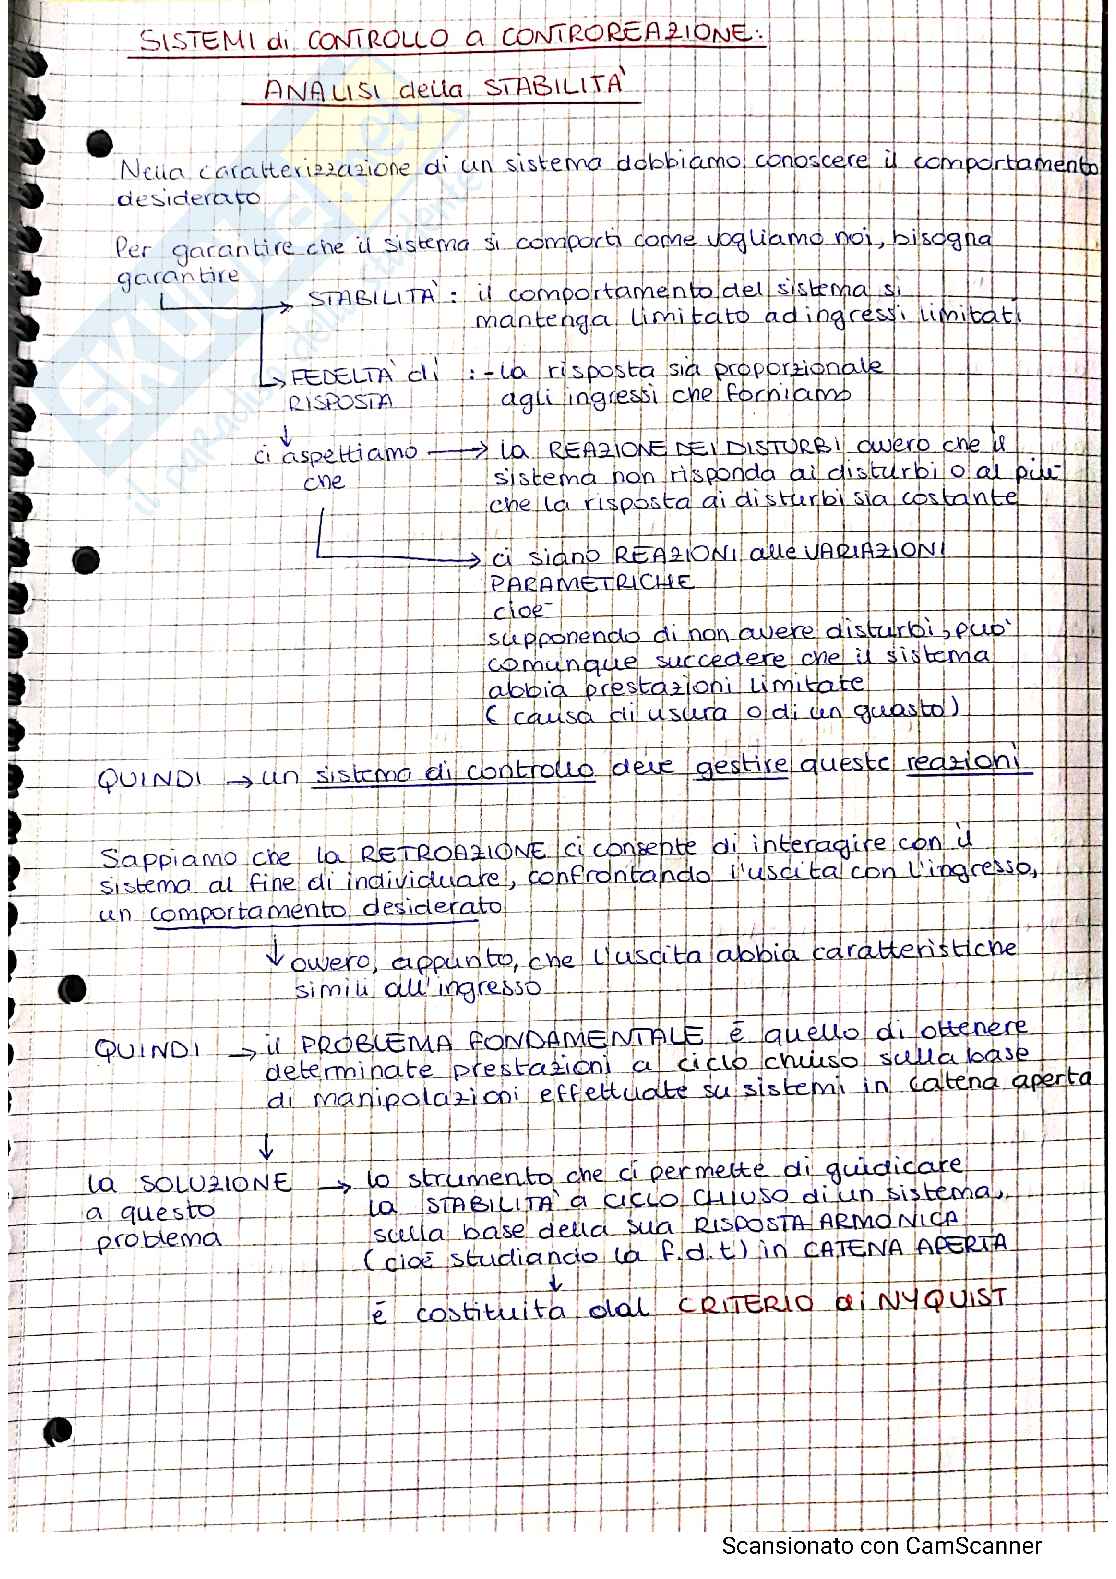 SISTEMI di CONTROLLO a CONTROREAZIONE:
ANALISI della STABILITA'
Nella caratterizzazione di un sistema dobbiamo conoscere il comportamento
desiderato
Per garantire che il sistema si comporti come vogliamo noi, bisogna
garantire
STABILITA': il comportamento del sistema si
mantenga limitato ad ingressi limitati
FEDELTA' di : - la risposta sia proporzionale
RISPOSTA agli ingressi che forniamo
ci aspettiamo → la REAZIONE DEI DISTURBI ovvero che il
che sistema non risponda ai disturbi o al più
che la risposta ai disturbi sia costante
→ ci siano REAZIONI alle VARIAZIONI
PARAMETRICHE
cioè
supponendo di non avere disturbi, può
comunque succedere che il sistema
abbia prestazioni limitate
(causa di usura o di un guasto)
QUINDI → un sistema di controllo deve gestire queste reazioni
Sappiamo che la RETROAZIONE ci consente di interagire con il
sistema al fine di individuare, confrontando l'uscita con l'ingresso,
un comportamento desiderato
↓ ovvero, appunto, che l'uscita abbia caratteristiche
simili all'ingresso
QUINDI → il PROBLEMA FONDAMENTALE è quello di ottenere
determinate prestazioni a ciclo chiuso sulla base
di manipolazioni effettuate su sistemi in catena aperta
↓
la SOLUZIONE → lo strumento che ci permette di guidicare
a questo la STABILITA' a CICLO CHIUSO di un sistema,
problema sulla base della sua RISPOSTA ARMONICA
(cioè studiando la f.d.t) in CATENA APERTA
↓
è costituita dal CRITERIO di NYQUIST
Scansionato con CamScanner